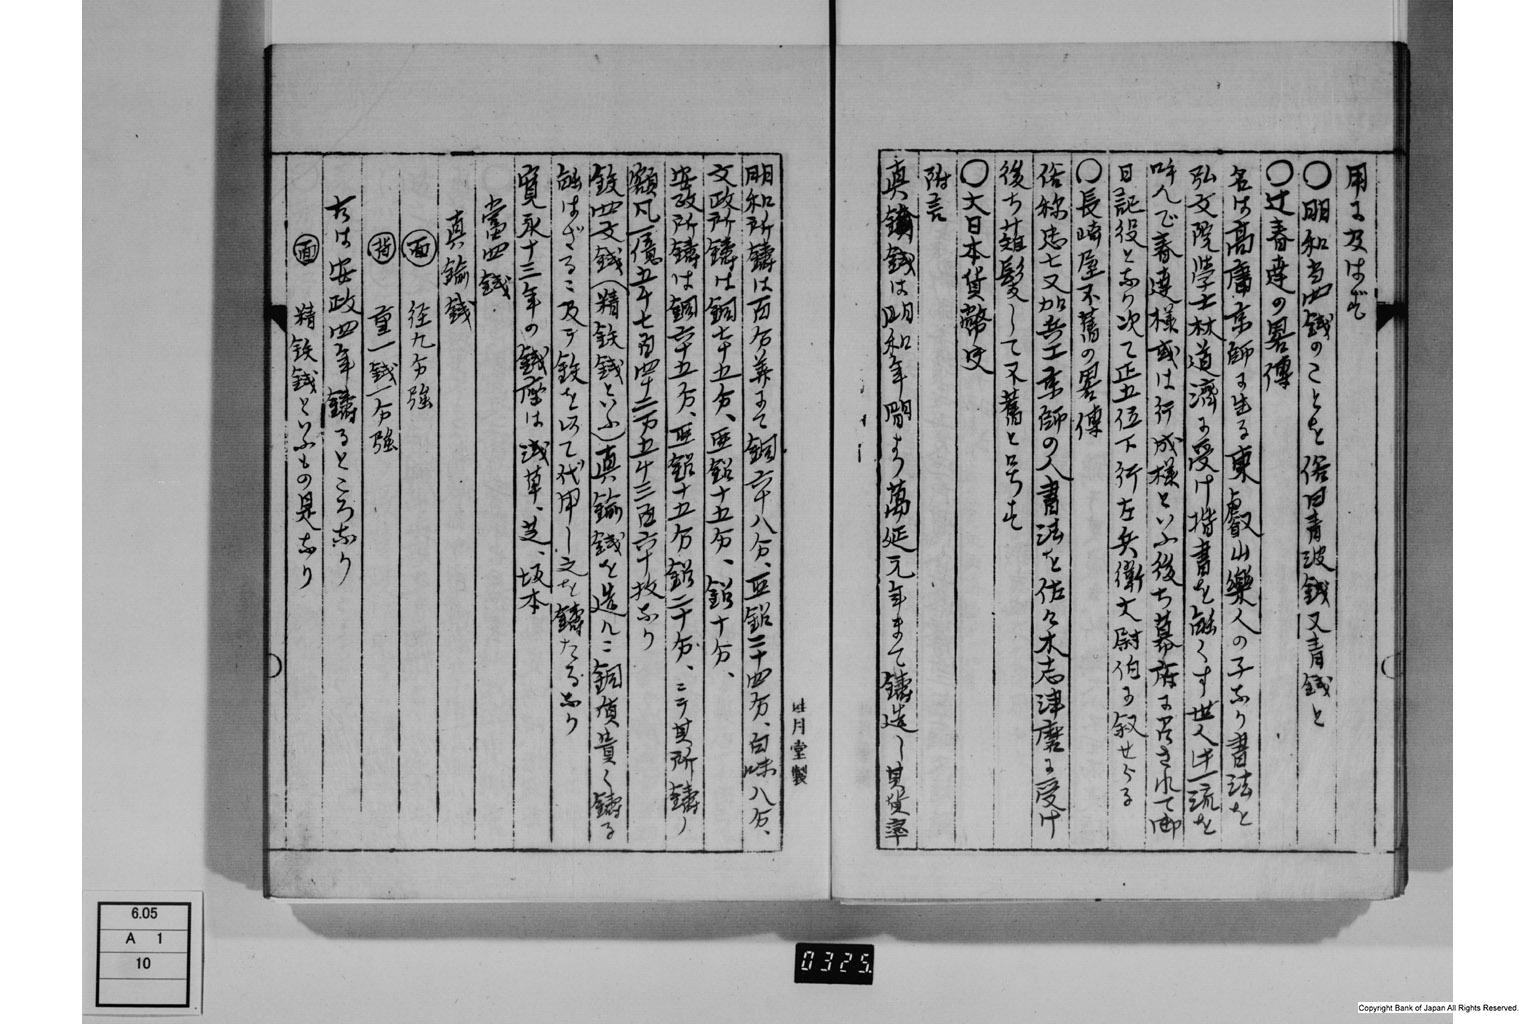 用に及はず
〇明和当四銭のことを俗曰青波銭又青銭と
〇辻春達の畧傳
名は高庸京師に生る東叡山樂人の子なり書法を
弘文院学士林道濟に受け楷書を能くす世人此一流を
呼んで春達様或は行成様といふ後ち幕府に召されて御
日記役となり次て正五位下行左兵衛大尉伯に叙せらる
〇長崎屋不舊の畧傳
俗称忠七又加兵エ京師の人書法を佐々木志津磨に受け
後ち薙髪して不舊と号す
〇大日本貨幣史
附言
真鍮銭は明和年間より萬延元年まて鑄造し其貨率
明和所鑄は百分算にて銅六十八分、亜鉛二十四分、白味八分、
文政所鑄は銅七十五分、亜鉛十五分、鉛十分、
安政所鑄は銅六十五分、亜鉛十五分鉛二十分、而シテ其所鑄ノ
額凡一億五千七百四十二万五千三百六十枚なり
鉄四文銭(精鉄銭といふ)真鍮銭を造ルニ銅價貴く鑄る
能はざるに及テ鉄を以て代用し之を鑄たるなり
寛永十三年の銭座は浅草、芝、坂本
當四銭
真鍮銭
面 径九分強
背 重一銭一分強
右は安政四年鑄るところなり
面 精鉄銭といふもの是なり
月堂製
6.05
A 1
10
0325
Copyright Bank of Japan All Rights Reserved.